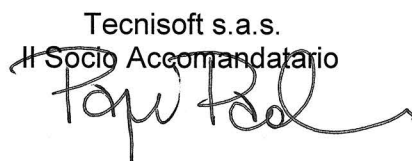 Tecnisoft s.a.s.
Il Socio Accomandatario